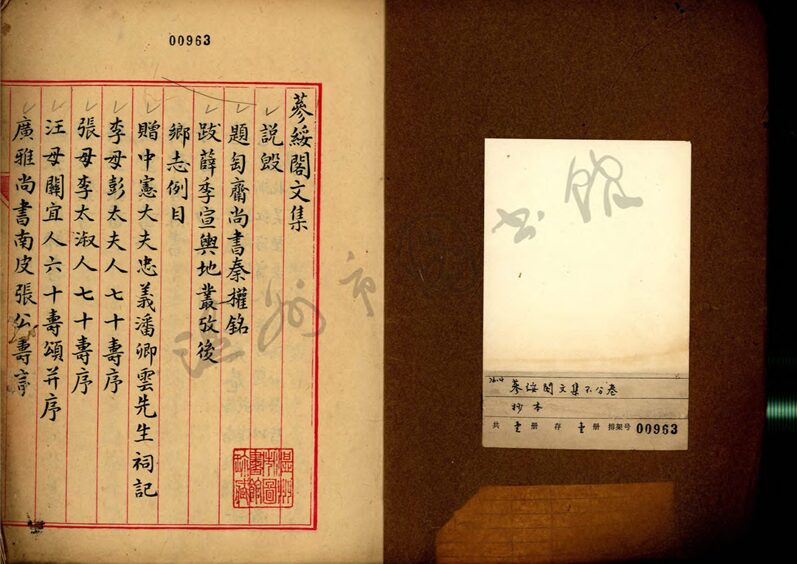 00963
蔘綏閣文集
說毀
題匋齋尚書秦權銘
跋薛季宣輿地叢攷後
鄉志例目
贈中憲大夫忠義潘卿雲先生祠記
李母彭太夫人七十壽序
張母李太淑人七十壽序
汪母關宜人六十壽頌并序
廣雅尚書南皮張公壽言
溫州市圖書館
蔘綏閣文集不分卷
抄本
共 1 册 存 1 册 排架号 00963